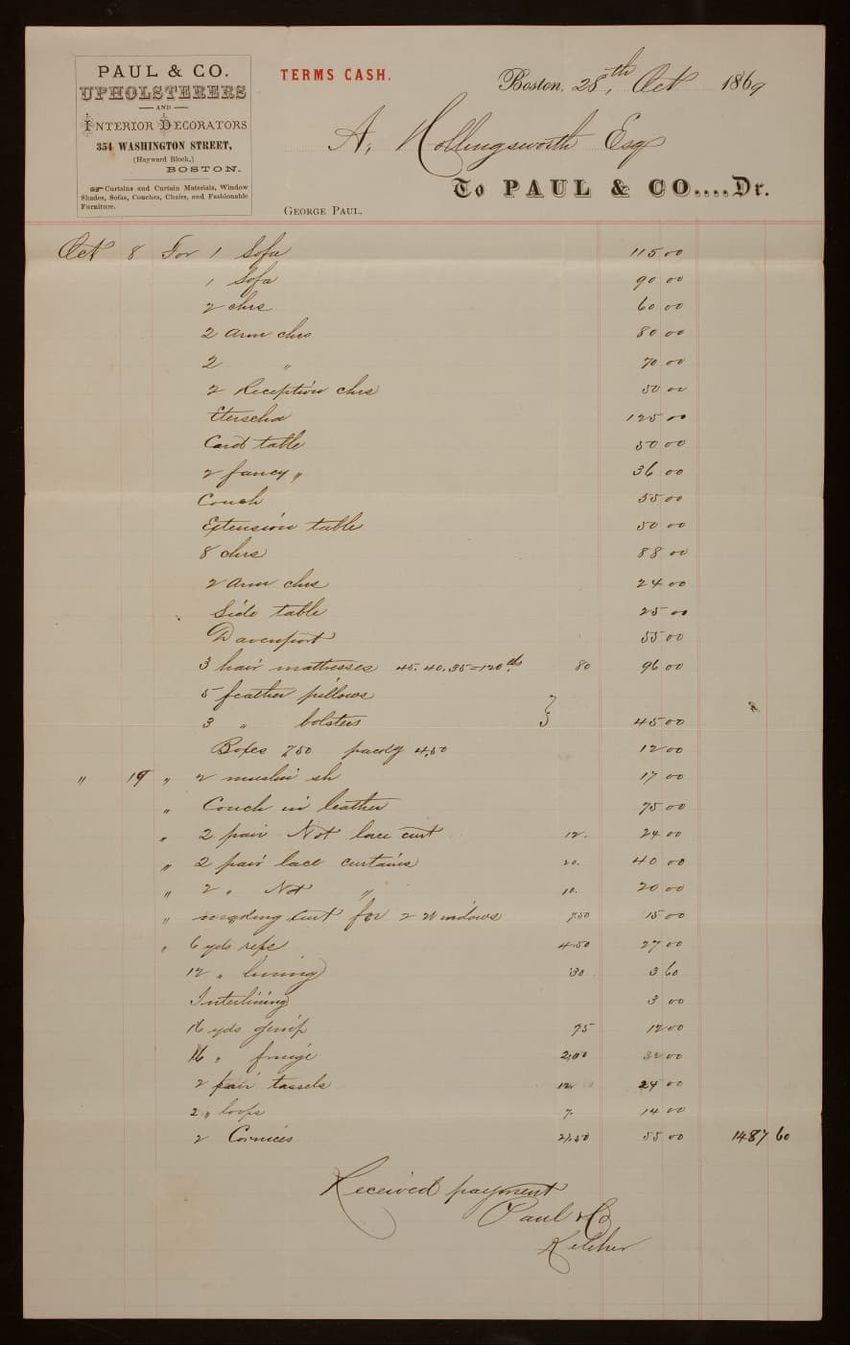 PAUL & CO.
UPHOLSTERERS
AND
INTERIOR DECORATORS
354 WASHINGTON STREET,
(Hayward Block,)
BOSTON.
Curtains and Curtain Materials, Window
Shades, Sofas, Couches, Chairs, and Fashionable
Furniture.
TERMS CASH.
Boston, 28th, Oct 1869
A, Hollingsworth Esq
To PAUL & CO....Dr.
GEORGE PAUL.
Oct 8 For 1 Sofa 115 00
1 Sofa 90 00
2 chrs 60 00
2 Arm chrs 80 00
2 " 70 00
2 Reception chrs 50 00
125 00
Card table 50 00
2 fancy " 36 00
Couch 55 00
Extension table 50 00
8 chrs 88 00
2 Arm chrs 24 00
Side table 25 00
Davenport 55 00
3 hair mattresses 45. 40. 35=120 lbs 80 96 00
5 feather pillows
3 " bolsters } 45 00
Boxes 7 50 packg 4,50 12 00
" 19 " 2 muslin sh 17 00
" Couch in leather 75 00
" 2 pair Not lace curt 12. 24 00
" 2 pair lace curtains 20. 40 00
" 2 " Not " 10. 20 00
" curt for 2 Windows 7 50 15 00
" 6 yds reps 4.50 27 00
12 " lining 30 3 60
Interlining 3 00
16 yds gimp 75 12 00
16 " fringe 2,00 32 00
2 pair tassels 12. 24 00
2 " loops 7. 14 00
2 Cornices 27,50 55 00 1487 60
Received payment
Paul & Co